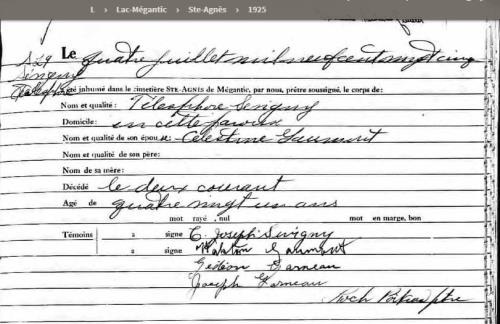 L › Lac-Mégantic › Ste-Agnès › 1925
Le quatre juillet mil neuf cent vingt cinq
S 29
Sévigny
Télesphore
été inhumé dans le cimetière STE-AGNÈS de Mégantic, par nous, prêtre soussigné, le corps de:
Nom et qualité: Télesphore Sevigny
Domicile: en cette paroisse
Nom et qualité de son épouse Celestine Gaumont
Nom et qualité de son père:
Nom de sa mère:
Décédé le deux courant
Agé de quatre vingt un ans
mot rayé, nul mot en marge, bon
Témoins a signé C. Joseph Sevigny
a signé Gaumont
Gédéon Garneau
Joseph Garneau
Ptre